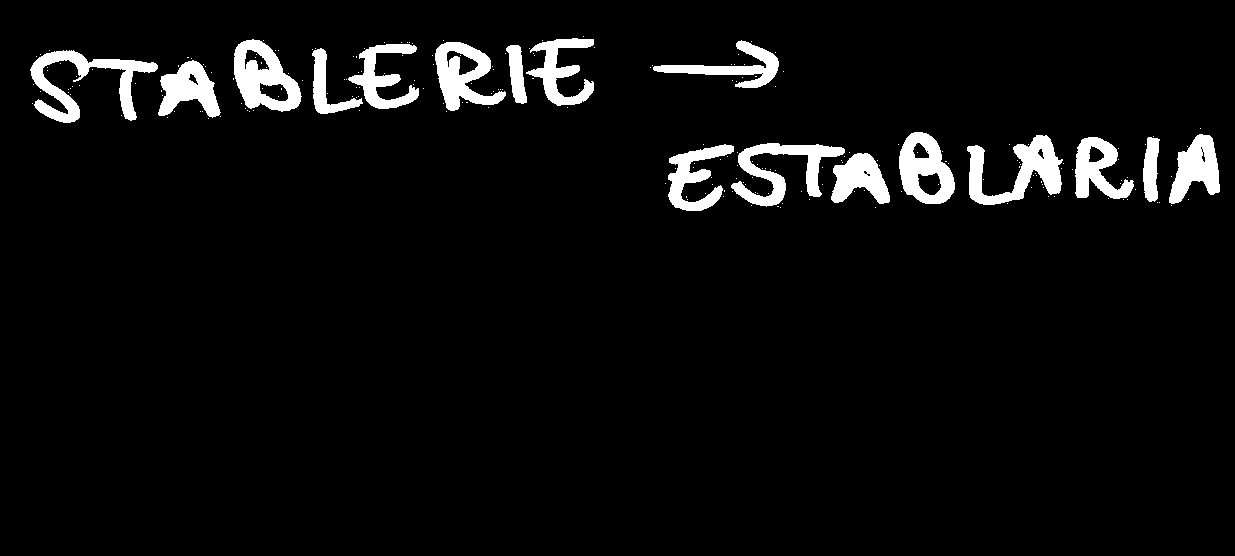 STABLERIE →
ESTABLARIA